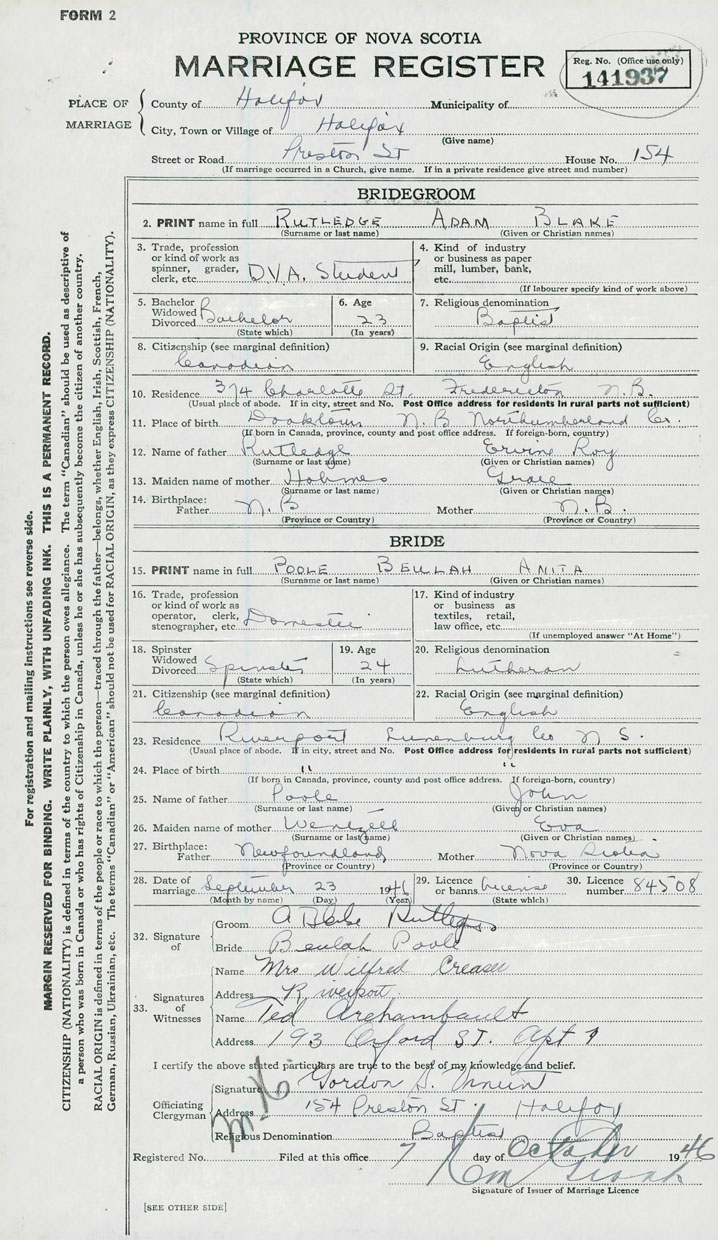 FORM 2
PROVINCE OF NOVA SCOTIA
MARRIAGE REGISTER
Reg. No. (Office use only)
141937
PLACE OF MARRIAGE
County of Halifax Municipality of
City, Town or Village of Halifax
(Give name)
Street or Road Preston St House No. 154
(If marriage occurred in a Church, give name. If in a private residence give street and number)
BRIDEGROOM
2. PRINT name in full RUTLEDGE ADAM BLAKE
(Surname or last name) (Given or Christian names)
3. Trade, profession or kind of work as spinner, grader, clerk, etc. D.V.A. Student
4. Kind of industry or business as paper mill, lumber, bank, etc.
(If labourer specify kind of work above)
5. Bachelor Widowed Divorced Bachelor
(State which)
6. Age 23
(In years)
7. Religious denomination
Baptist
8. Citizenship (see marginal definition)
Canadian
9. Racial Origin (see marginal definition)
English
10. Residence 374 Charlotte St. Fredericton N.B.
(Usual place of abode. If in city, street and No. Post Office address for residents in rural parts not sufficient)
11. Place of birth Doaktown N.B Northumberland Co.
(If born in Canada, province, county and post office address. If foreign-born, country)
12. Name of father Rutledge Ervine Roy
(Surname or last name) (Given or Christian names)
13. Maiden name of mother Holmes Grace
(Surname or last name) (Given or Christian names)
14. Birthplace:
Father N.B Mother N.B.
(Province or Country) (Province or Country)
BRIDE
15. PRINT name in full POOLE BEULAH ANITA
(Surname or last name) (Given or Christian names)
16. Trade, profession or kind of work as operator, clerk, stenographer, etc. Domestic
17. Kind of industry or business as textiles, retail, law office, etc.
(If unemployed answer "At Home")
18. Spinster Widowed Divorced Spinster
(State which)
19. Age 24
(In years)
20. Religious denomination
Lutheran
21. Citizenship (see marginal definition)
Canadian
22. Racial Origin (see marginal definition)
English
23. Residence Riverport Lunenburg Co N S.
(Usual place of abode. If in city, street and No. Post Office address for residents in rural parts not sufficient)
24. Place of birth " "
(If born in Canada, province, county and post office address. If foreign-born, country)
25. Name of father Poole John
(Surname or last name) (Given or Christian names)
26. Maiden name of mother Wentzell Eva
(Surname or last name) (Given or Christian names)
27. Birthplace:
Father Newfoundland Mother Nova Scotia
(Province or Country) (Province or Country)
28. Date of marriage September 23 1946
(Month by name) (Day) (Year)
29. Licence or banns License
(State which)
30. Licence number 84508
32. Signature of
Groom A Blake Rutledge
Bride Beulah Poole
33. Signatures of Witnesses
Name Mrs Wilfred Creaser
Address Riverport.
Name Ted Archambault
Address 193 Oxford ST. Apt 9
I certify the above stated particulars are true to the best of my knowledge and belief.
Officiating Clergyman
Signature Gordon
Address 154 Preston St. Halifax
Religious Denomination Baptist
Registered No. Filed at this office 7 day of October 1946
Signature of Issuer of Marriage Licence
[SEE OTHER SIDE]
For registration and mailing instructions see reverse side.
MARGIN RESERVED FOR BINDING. WRITE PLAINLY, WITH UNFADING INK. THIS IS A PERMANENT RECORD.
CITIZENSHIP (NATIONALITY) is defined in terms of the country to which the person owes allegiance. The term "Canadian" should be used as descriptive of
a person who was born in Canada or who has rights of Citizenship in Canada, unless he or she has subsequently become the citizen of another country.
RACIAL ORIGIN is defined in terms of the people or race to which the person—traced through the father—belongs, whether English, Irish, Scottish, French,
German, Russian, Ukrainian, etc. The terms "Canadian" or "American" should not be used for RACIAL ORIGIN, as they express CITIZENSHIP (NATIONALITY).